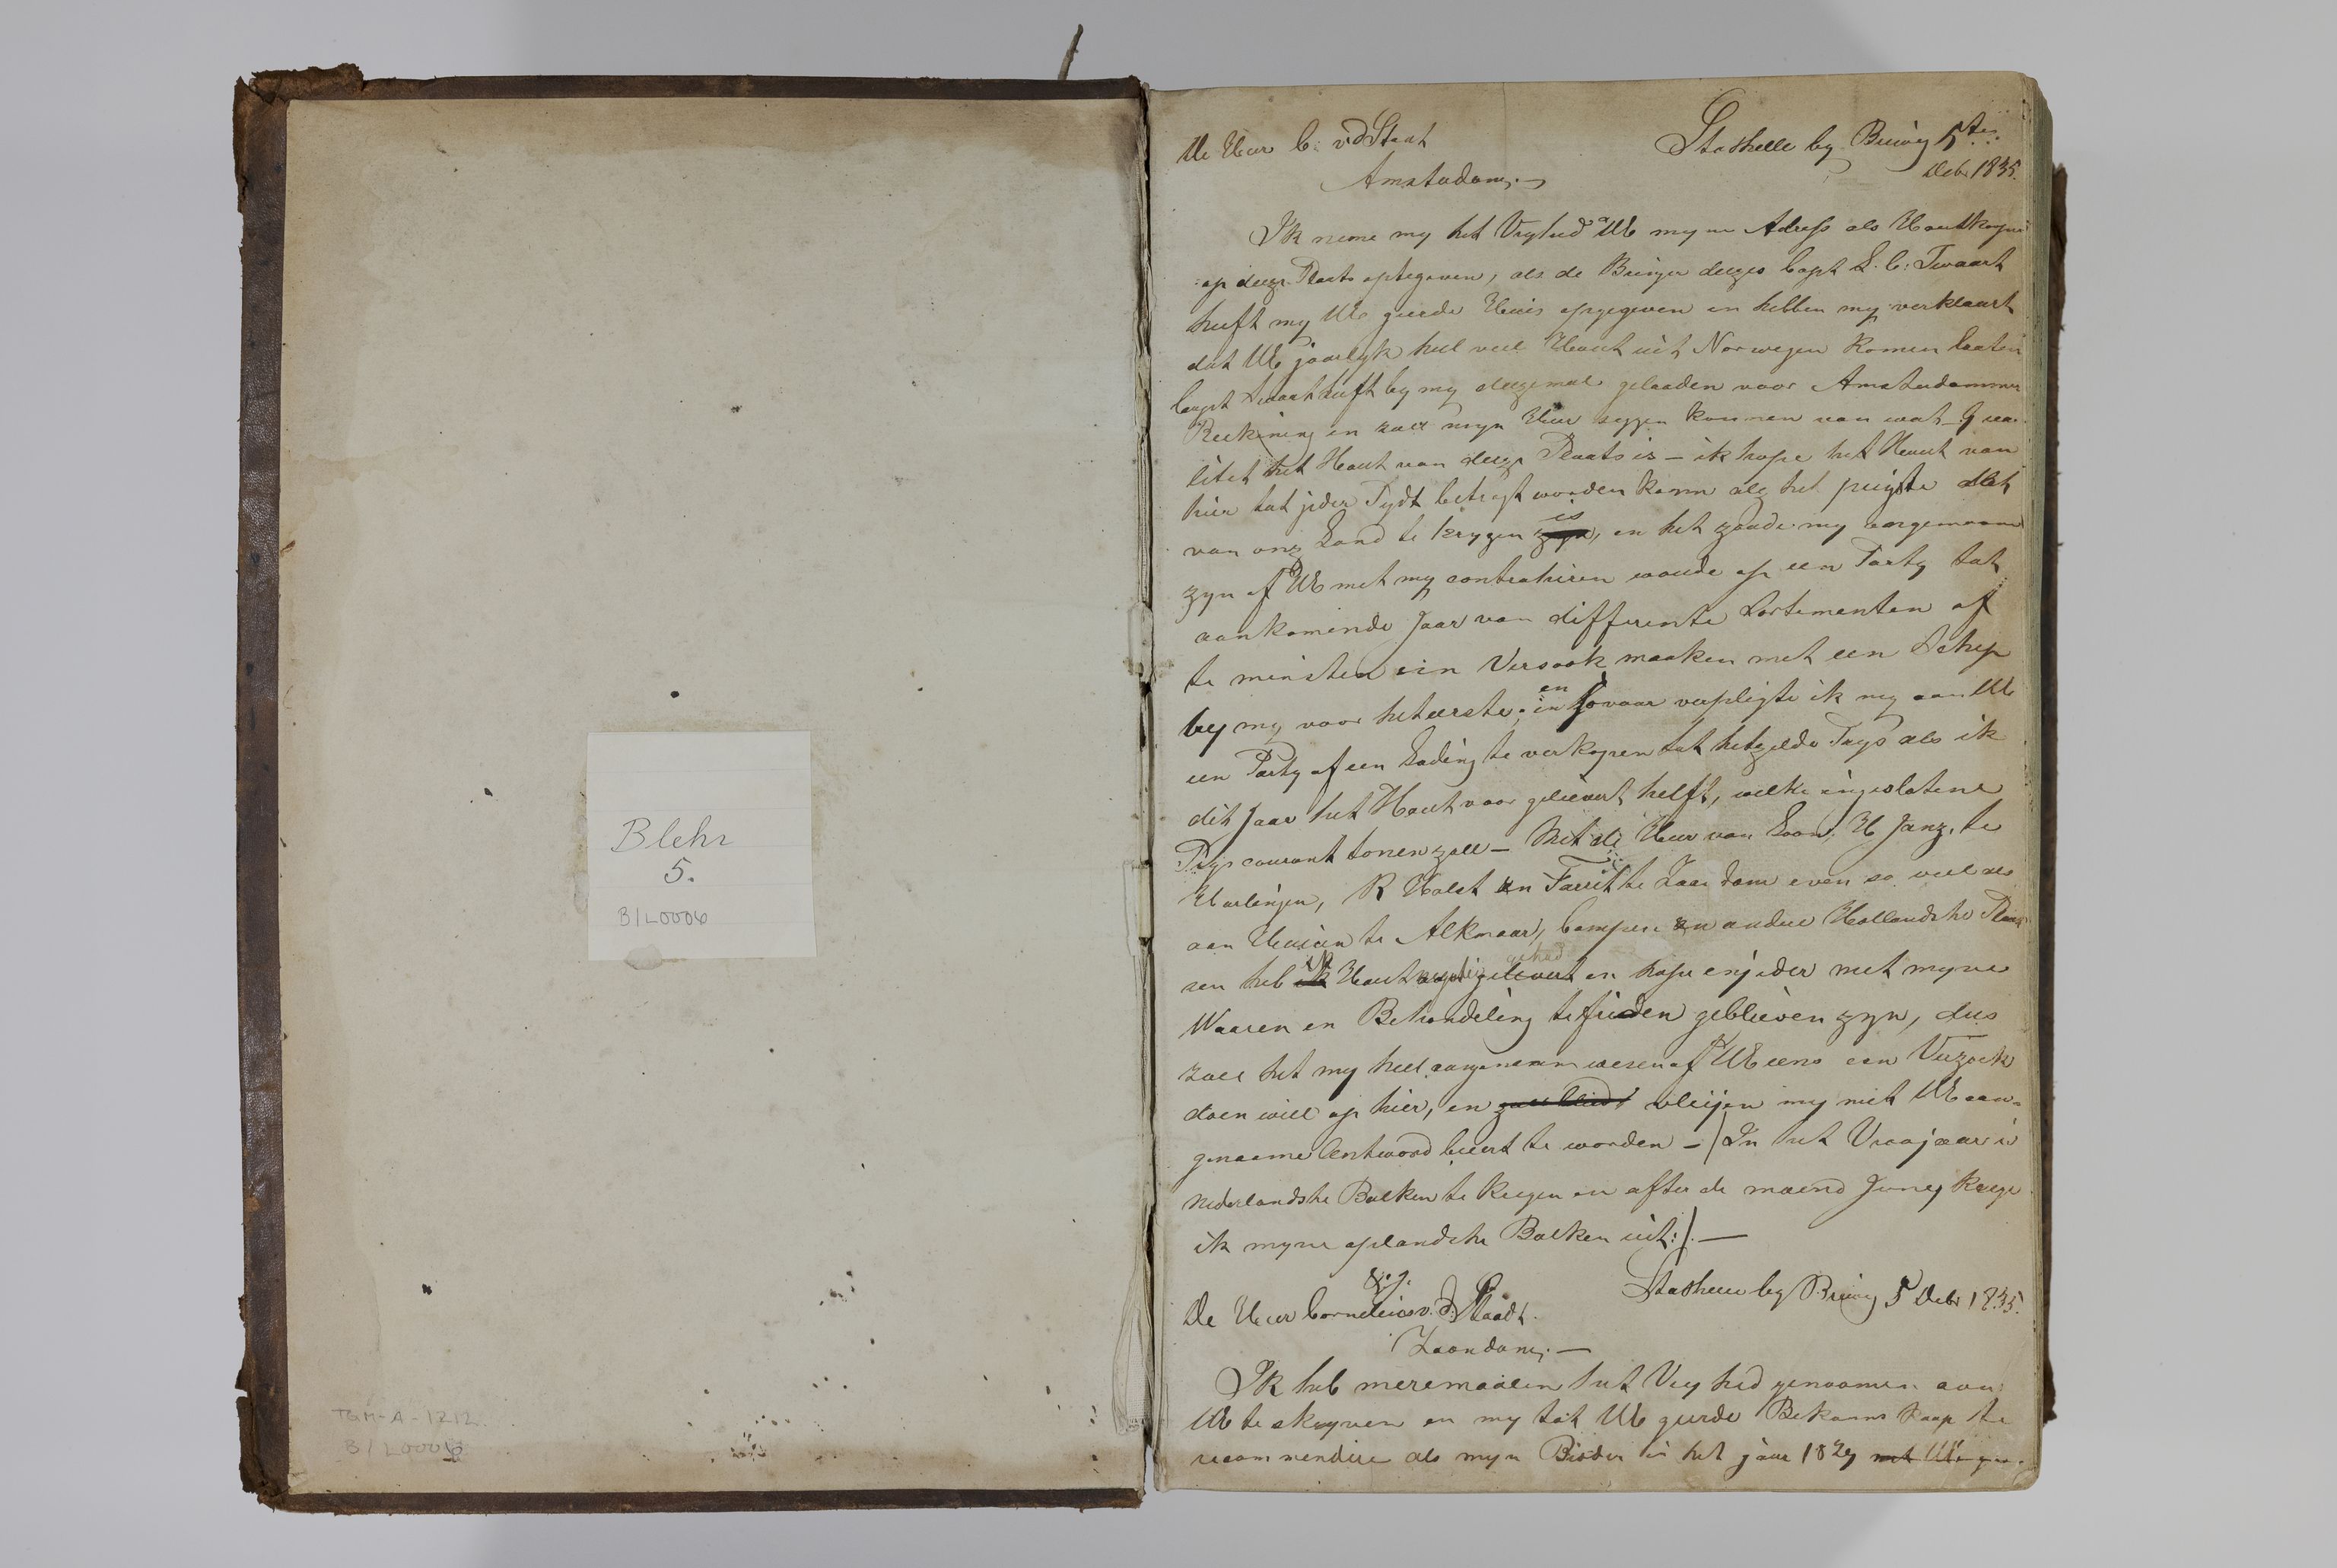 Blehr
5.
B/L0006
TGM-A-1212.
B/L0006
De Heer C: vd Staat
Amsterdam;
Stathelle by Brevig 5te
Debr 1835.
Ik neme my het Vryheid UE myne Adress als Houtkoper
op deeze Plaats optegeven, als de Brenger deezes Capt S. C: Swaart
heeft my UE geerde Huis opgegeven en hebben my verklaart
dat UE jaarlyk heel veel Hout uit Norwegen komen laaten
Capt Swaart heeft by my deezemal gelaaden voor Amsterdammer
Reekning en zall myn Heer seggen konnen van wat Qua-
litet het Hout van deeze Plaats is - ik hope het Hout van
hier tot jeder Tydt betragt worden kann als het puigste dat
van onz Land te krygen is zyn, en het zoude my angenaam
zyn of UE met my contrahiren woude op een Party tot
aankomende Jaar van differente Sortementen of
te minsten ein Versook maaken met een Schep
by my voor het eerste; en verpligte ik my aan UE
een Party of een Lading te verkopen tot hetzelde Prys als ik
dit Jaar het Hout voor gelievert heft, welke ingeslotene
Pryscourant tonen zall - Met de Heer van Loon, H Janz. te
Harlingen, R Holst en te Zaandam even so veel als
aan Huisen te Alkmaar, Campen en andere Hollandsche Plaa
sen heb ik Hout gehad gelevert en hope enjeder met myne
Waaren en Behandeling tefreden geblieven zyn, dus
zall het my heel aangenaam wesen of UE eens een Verzoek
doen will op hier, en vleijen my met UE aan-
genaame Antword beert te worden - / In het Voorjaar is
Nederlandsche Balken te kregen en after de maend Juny krege
ik myne oplandsche Balken uit:/. -
De Heer Cornelius v. d: Staadt.
Zaandam; -
Stathelle by Brevig 5 Debr 1835.
Ik heb meremaalen het Vryhed genoomen aan
UE te skryven en my tot UE geerde Bekannskaap te
recommendire als myn Broder in het jaar 1829 met UE